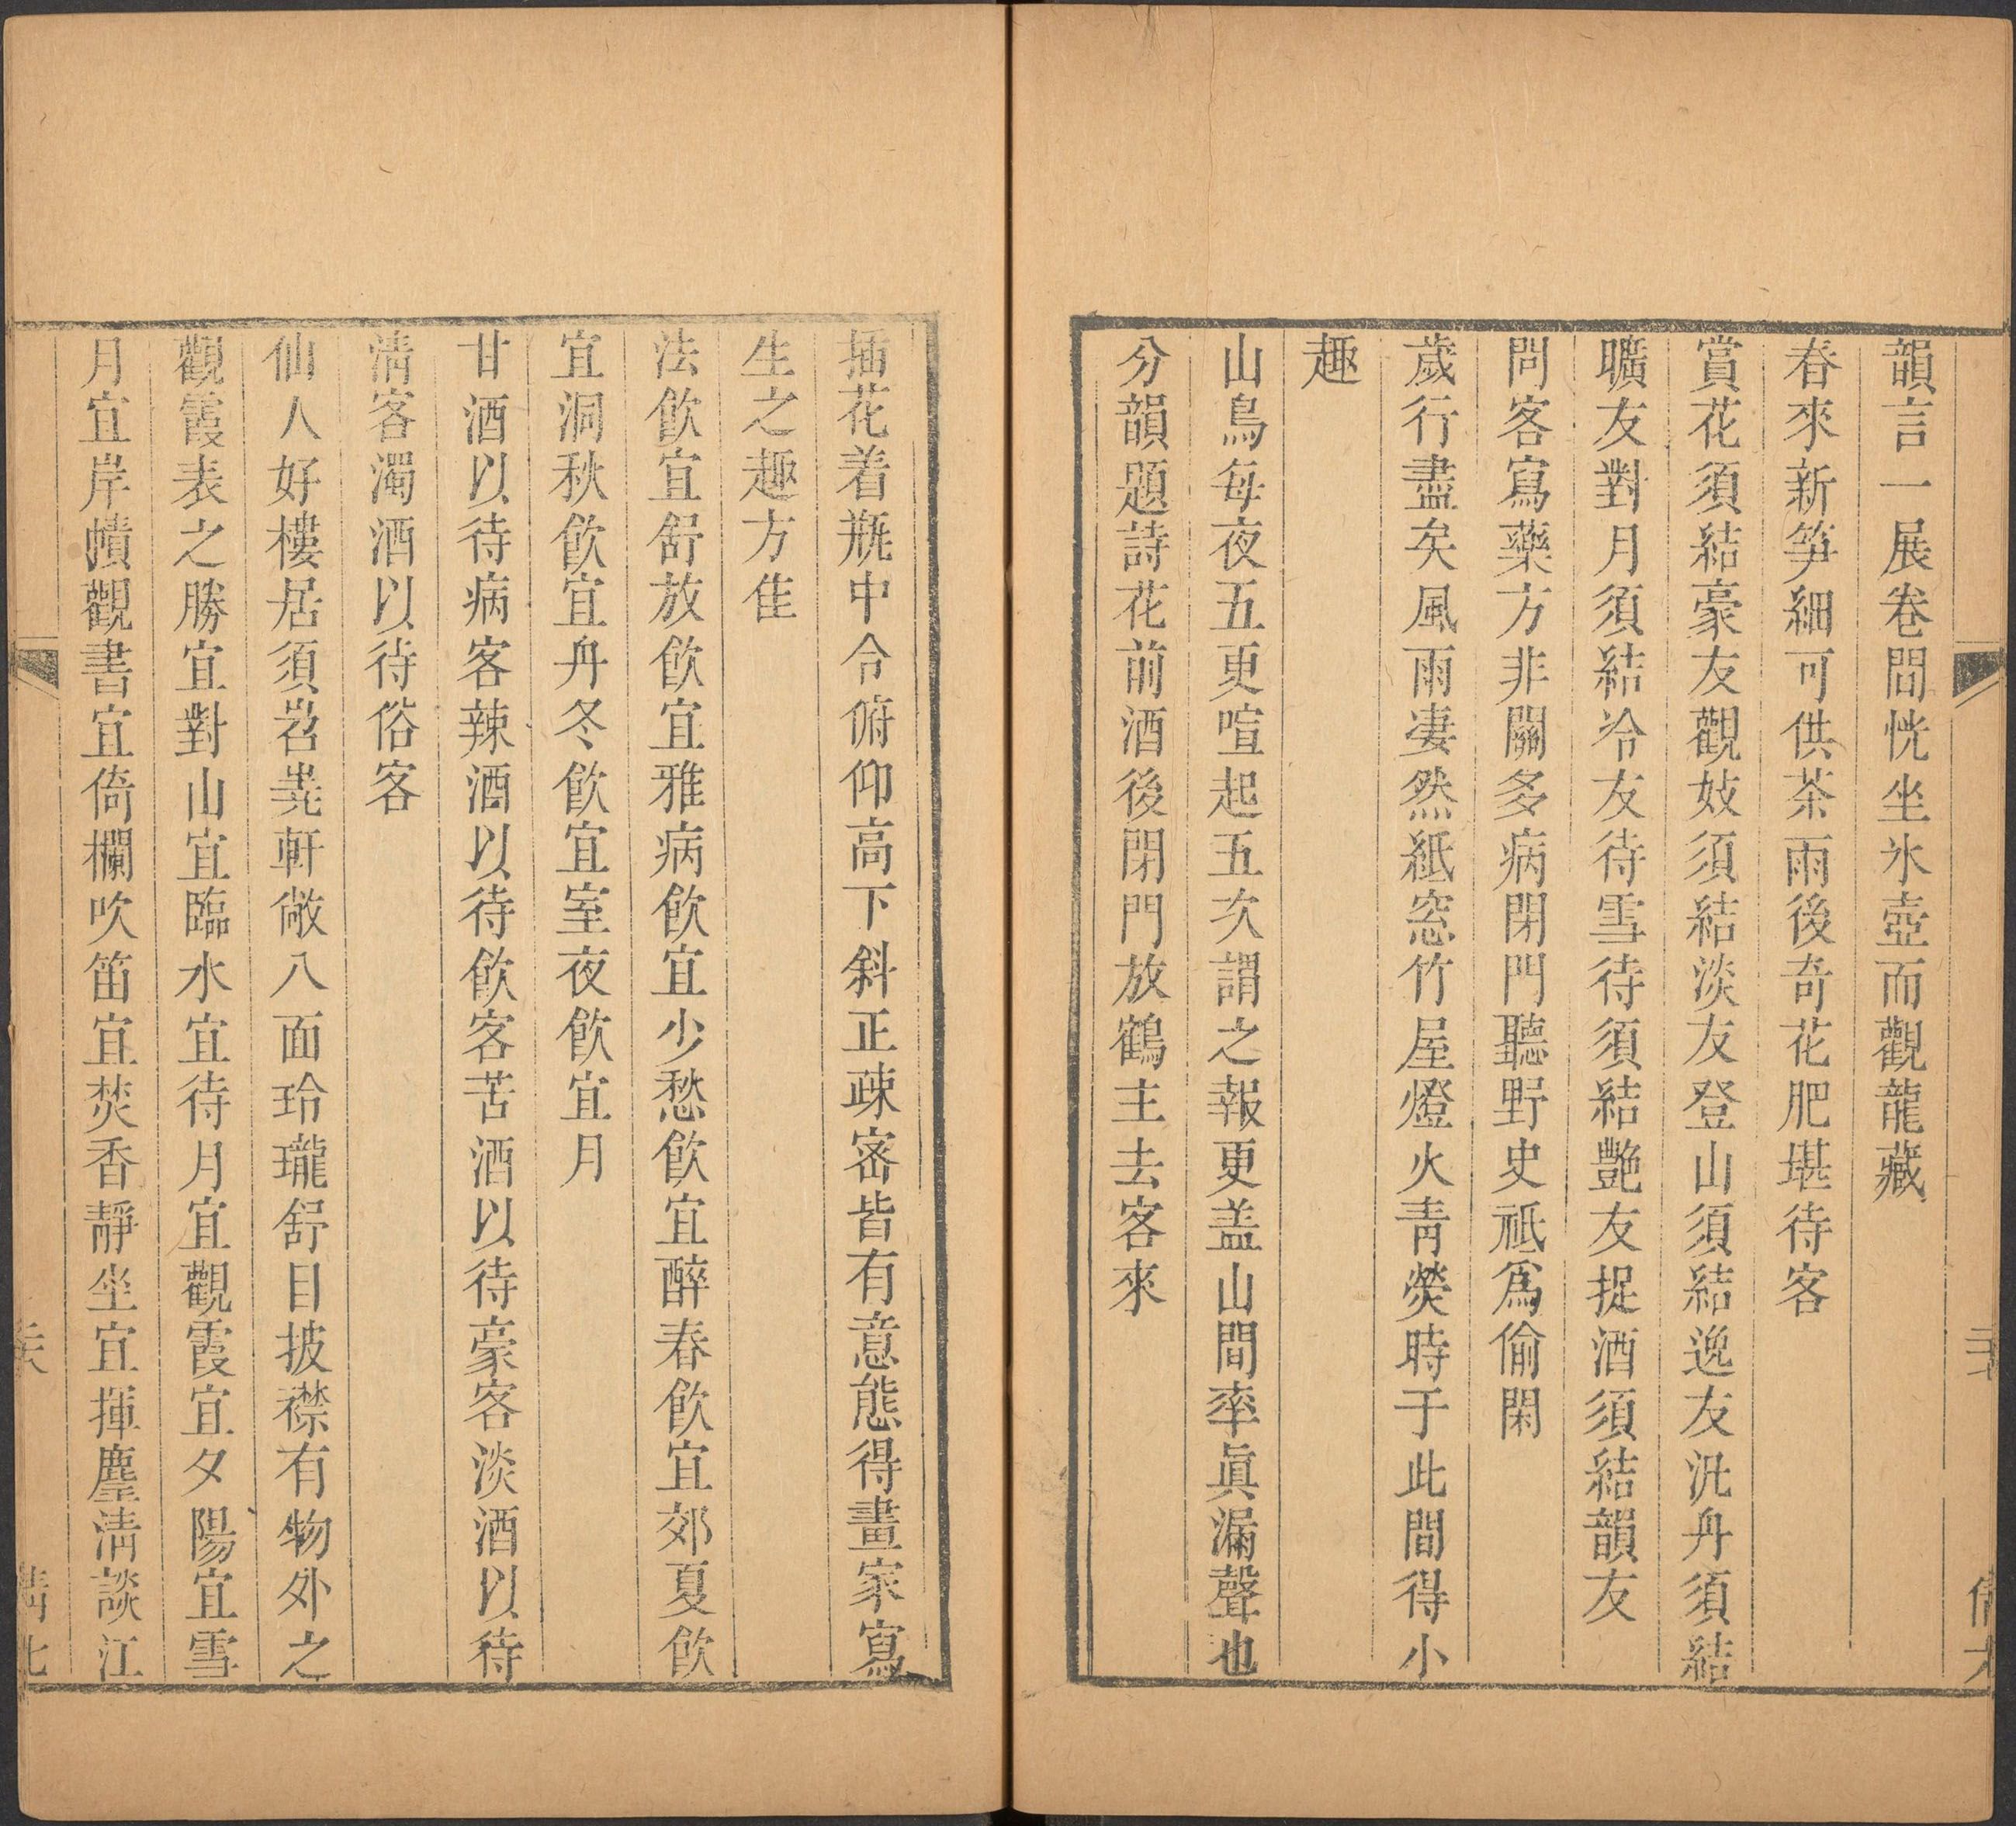 韻言一展卷間恍坐氷壺而觀龍藏
春來新笋細可供茶雨後奇花肥堪待客
賞花須結豪友觀妓須結淡友登山須結逸友汎舟須結
曠友對月須結冷友待雪待須結艶友捉酒須結韻友
問客寫藥方非關多病閉門聽野史祗爲偷閑
歲行盡矣風雨凄然紙窓竹屋燈火青熒時于此間得小
趣
山鳥每夜五更喧起五次謂之報更盖山間率眞漏聲也
分韻題詩花前酒後閉門放鶴主去客來
插花着瓶中令俯仰高下斜正疎宻皆有意態得畫家寫
生之趣方隹
法飲宜舒放飲宜雅病飲宜少愁飲宜醉春飲宜郊夏飲
宜洞秋飲宜舟冬飲宜室夜飲宜月
甘酒以待病客辣酒以待飲客苦酒以待豪客淡酒以待
清客濁酒以待俗客
仙人好樓居須岧嶤軒敞八面玲瓏舒目披襟有物外之
觀霞表之勝宜對山宜臨水宜待月宜觀霞宜夕陽宜雪
月宜岸幘觀書宜倚欄吹笛宜焚香靜坐宜揮麈清談江